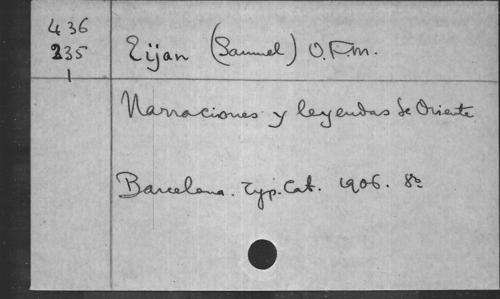 436
235
1
Eijan (Samuel) O.F.M.
Narraciones y leyendas de Oriente
Barcelona. Typ. Cat. 1906. 8º